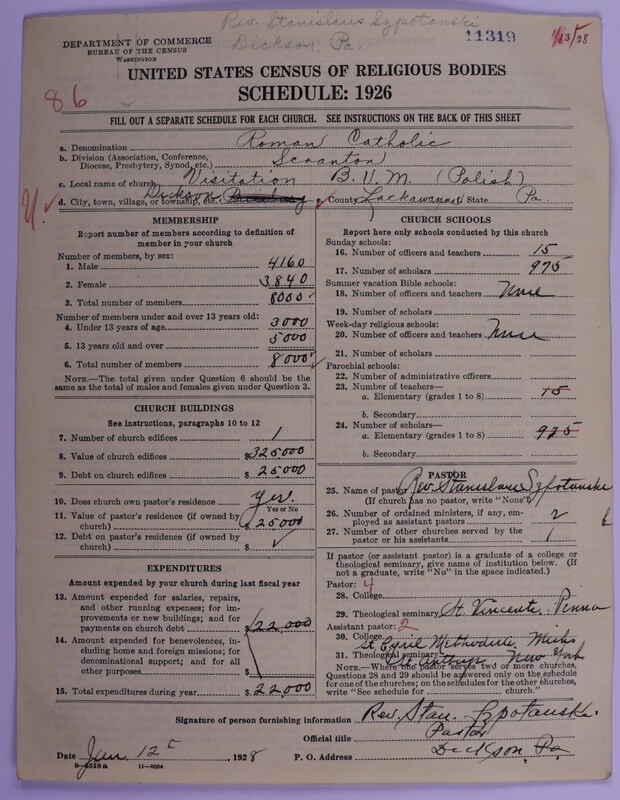 Rev. Stanislaus Szpotanski
Dickson, Pa.
11319
1/13/28
DEPARTMENT OF COMMERCE
BUREAU OF THE CENSUS
WASHINGTON
UNITED STATES CENSUS OF RELIGIOUS BODIES
SCHEDULE: 1926
86
FILL OUT A SEPARATE SCHEDULE FOR EACH CHURCH. SEE INSTRUCTIONS ON THE BACK OF THIS SHEET
a. Denomination Roman Catholic
b. Division (Association, Conference, Diocese, Presbytery, Synod, etc.) Scranton
c. Local name of church Visitation B.V.M. (Polish)
d. City, town, village, or township Dickson, e. County Lackawanna State Pa.
MEMBERSHIP
Report number of members according to definition of
member in your church
Number of members, by sex:
1. Male 4160
2. Female 3840
3. Total number of members 8000
Number of members under and over 13 years old:
4. Under 13 years of age 3000
5. 13 years old and over 5000
6. Total number of members 8000
NOTE.—The total given under Question 6 should be
the same as the total of males and females given under Question 3.
CHURCH BUILDINGS
See instructions, paragraphs 10 to 12
7. Number of church edifices 1
8. Value of church edifices $325000
9. Debt on church edifices $ 25000
10. Does church own pastor's residence yes.
Yes or No
11. Value of pastor's residence (if owned by
church) $25000
12. Debt on pastor's residence (if owned by
church) $ ✓
EXPENDITURES
Amount expended by your church during last fiscal year
13. Amount expended for salaries, repairs,
and other running expenses; for im-
provements or new buildings; and for
payments on church debt $22,000
14. Amount expended for benevolences, in-
cluding home and foreign missions; for
denominational support; and for all
other purposes $
15. Total expenditures during year $22,000
CHURCH SCHOOLS
Report here only schools conducted by this church
Sunday schools:
16. Number of officers and teachers 15
17. Number of scholars 975
Summer vacation Bible schools:
18. Number of officers and teachers None
19. Number of scholars
Week-day religious schools:
20. Number of officers and teachers None
21. Number of scholars
Parochial schools:
22. Number of administrative officers
23. Number of teachers—
a. Elementary (grades 1 to 8) 15
b. Secondary
24. Number of scholars—
a. Elementary (grades 1 to 8) 975
b. Secondary
PASTOR
25. Name of pastor Rev. Stanislaus Szpotanski
(If church has no pastor, write "None")
26. Number of ordained ministers, if any, em-
ployed as assistant pastors 2
27. Number of other churches served by the
pastor or his assistants 1
If pastor (or assistant pastor) is a graduate of a college or
theological seminary, give name of institution below. (If
not a graduate, write "No" in the space indicated.)
Pastor: 4
28. College
29. Theological seminary St. Vincents, Penna
Assistant pastor: 2
30. College St. Cyril Methodii, Mich
31. Theological seminary New York
NOTE.—Where the pastor serves two or more churches,
Questions 28 and 29 should be answered only on the schedule
for one of the churches; on the schedules for the other churches,
write "See schedule for church."
Signature of person furnishing information Rev. Stan. Szpotanski
Official title Pastor
Date Jan. 12, 1928 P. O. Address Dickson, Pa.
8-5518a 11-9664